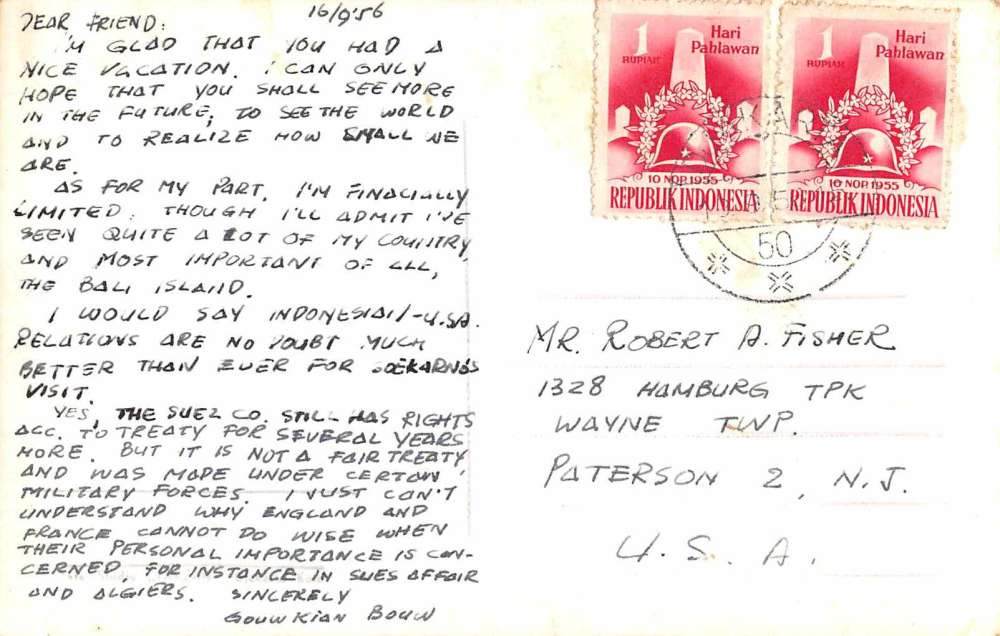 16/9'56
DEAR FRIEND:
I'M GLAD THAT YOU HAD A
NICE VACATION. I CAN ONLY
HOPE THAT YOU SHALL SEE MORE
IN THE FUTURE, TO SEE THE WORLD
AND TO REALIZE HOW SMALL WE
ARE.
AS FOR MY PART, I'M FINACIALLY
LIMITED. THOUGH I'LL ADMIT I'VE
SEEN QUITE A LOT OF MY COUNTRY,
AND MOST IMPORTANT OF ALL,
THE BALI ISLAND.
I WOULD SAY INDONESIAN-U.SA.
RELATIONS ARE NO DOUBT MUCH
BETTER THAN EVER FOR SOEKARNO'S
VISIT.
YES, THE SUEZ CO. STILL HAS RIGHTS
ACC. TO TREATY FOR SEVERAL YEARS
MORE. BUT IT IS NOT A FAIR TREATY
AND WAS MADE UNDER CERTAIN
MILITARY FORCES. I JUST CAN'T
UNDERSTAND WHY ENGLAND AND
FRANCE CANNOT DO WISE WHEN
THEIR PERSONAL IMPORTANCE IS CON-
CERNED FOR INSTANCE IN SUES AFFAIR
AND ALGIERS. SINCERELY
GOUW KIAN BOUW
1
RUPIAH
Hari
Pahlawan
10 NOP. 1955
REPUBLIK INDONESIA
1
RUPIAH
Hari
Pahlawan
10 NOP. 1955
REPUBLIK INDONESIA
50
MR. ROBERT A. FISHER
1328 HAMBURG TPK
WAYNE TWP.
PATERSON 2, N.J.
U.S.A.